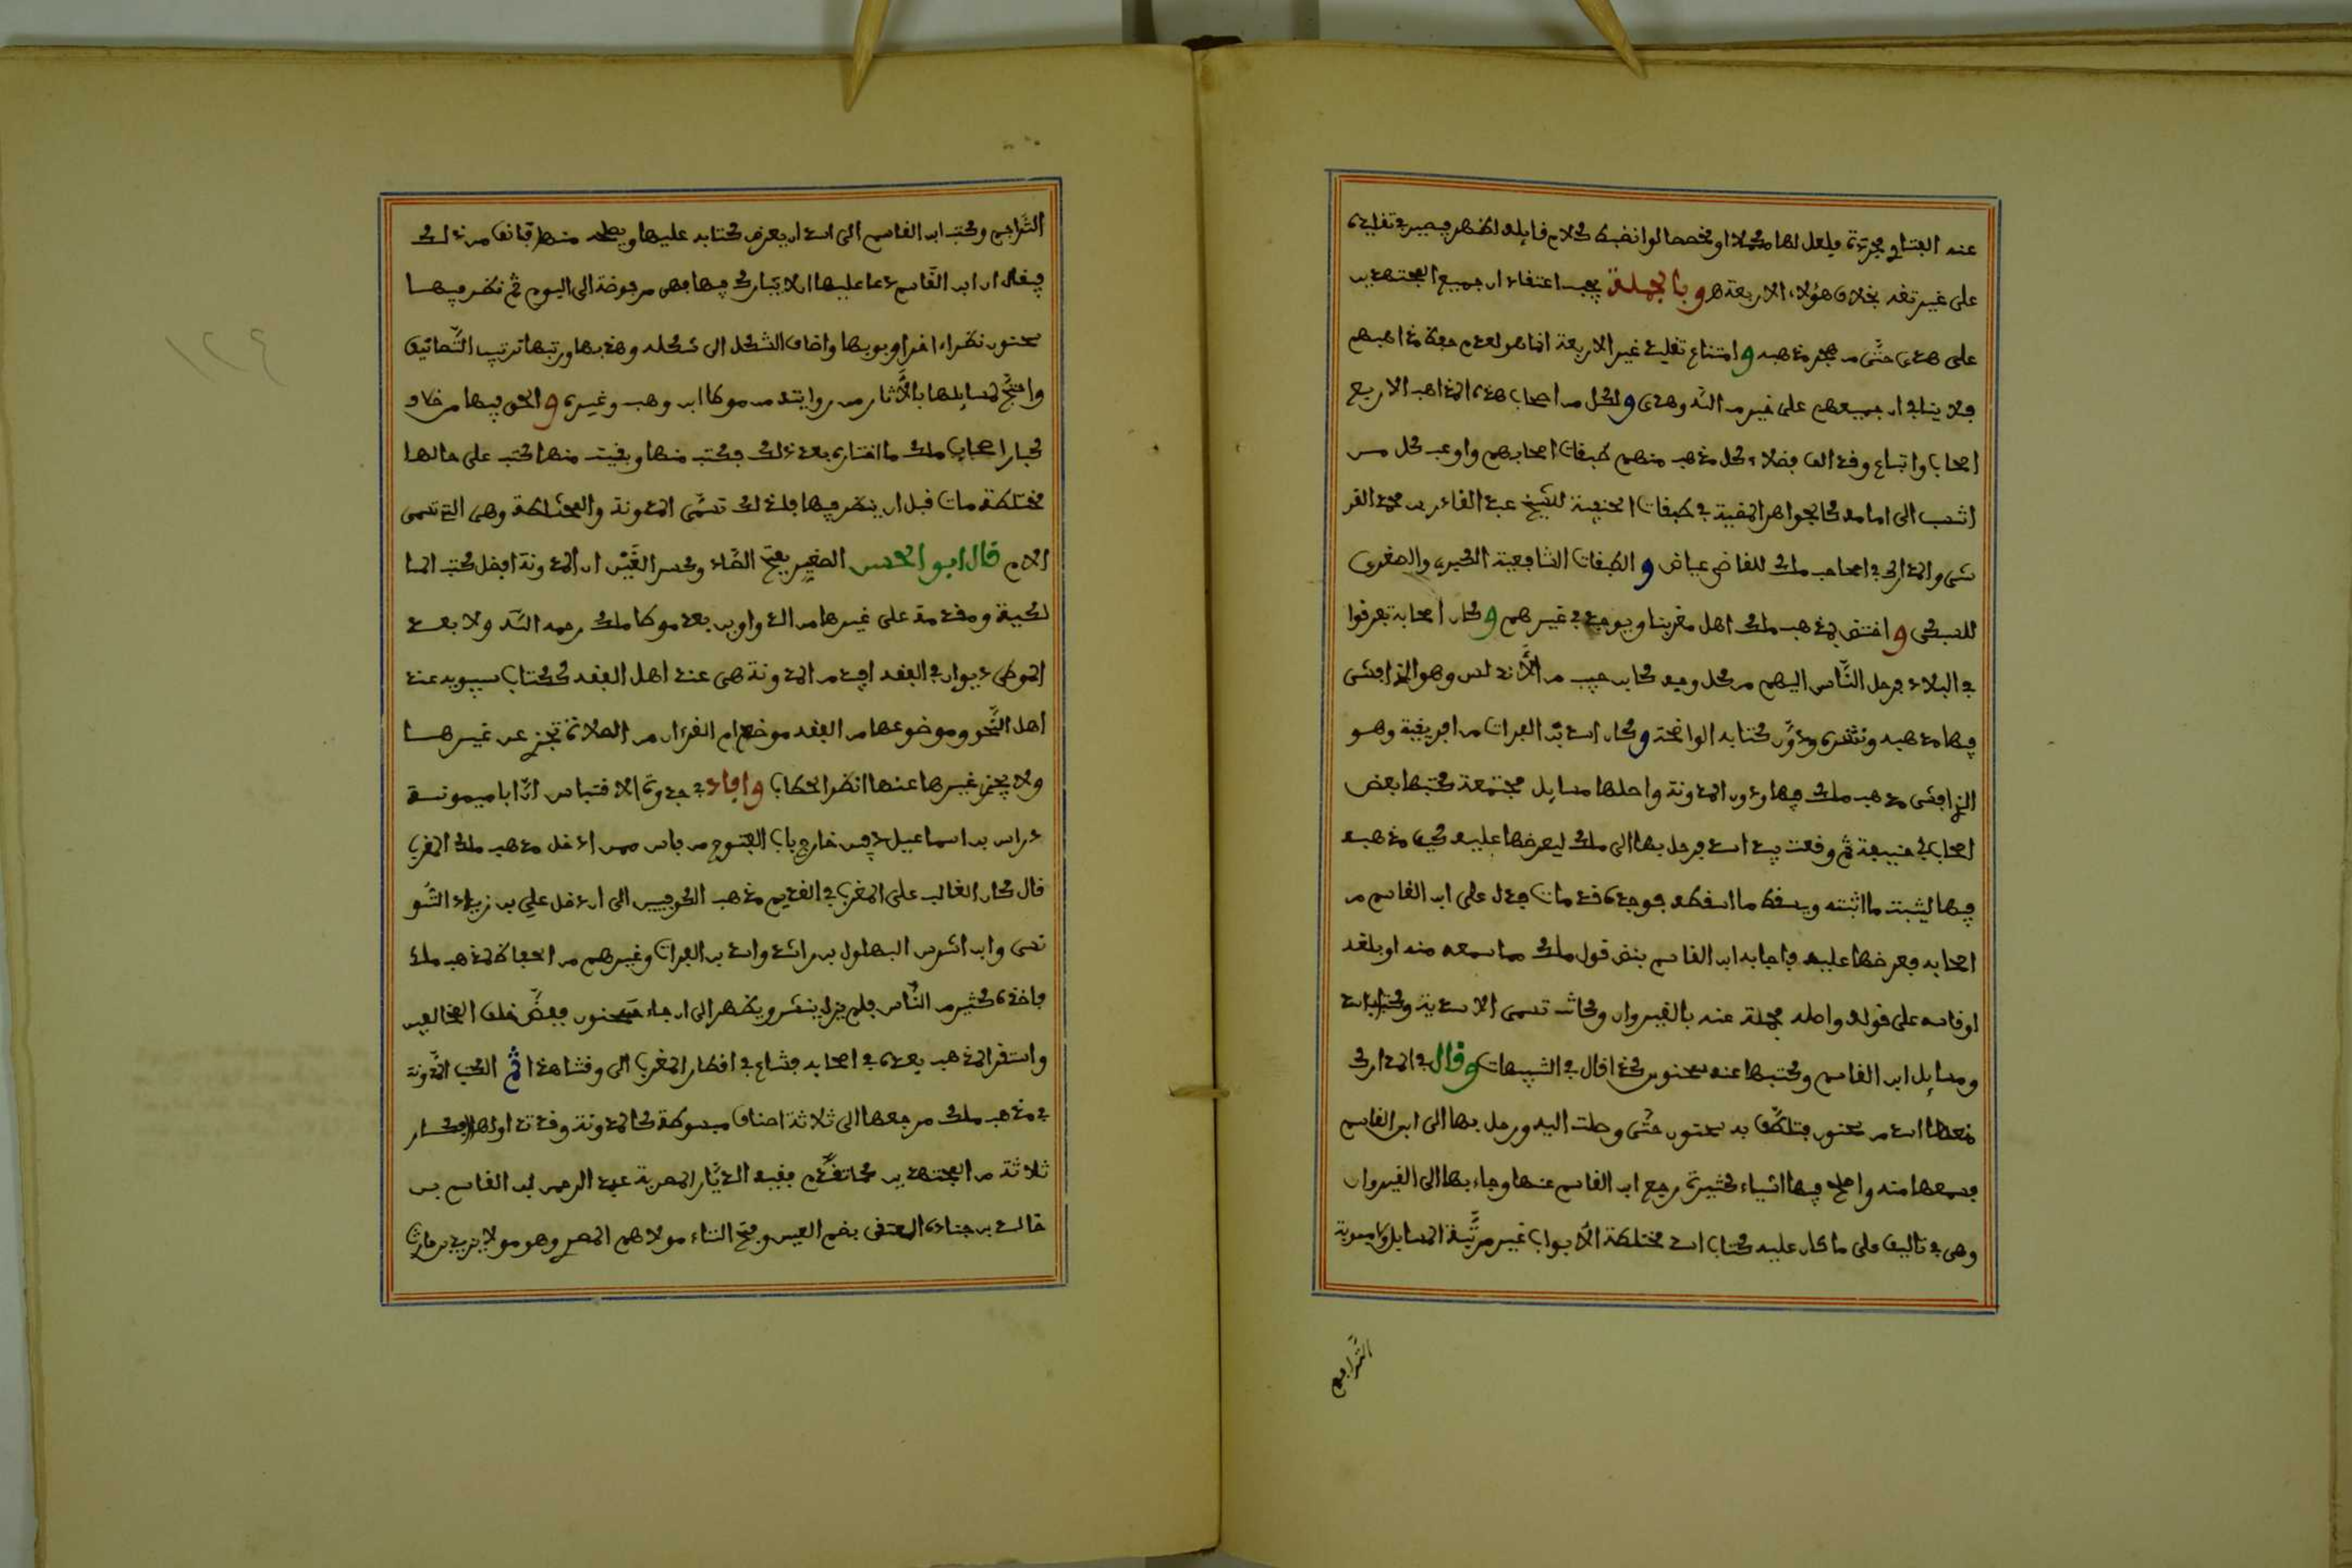 عنه الفتاوي مجردة فلعل لها مكملا او مخصصا لو انضبط كلام قايله لظهر فيصير في تقليده
على غير ثقة بخلاف هؤلاء الاربعة هـ وبالجملة يجب اعتقاد ان جميع المجتهدين
على هدى حتى من هجر مذهبه و امتناع تقليد غير الاربعة انما هو لعدم حفظ مذاهبهم
فلا ينافي ان جميعهم على خير من الله وهدى ولكل من اصحاب هذه المذاهب الاربع
اصحاب واتباع وقد الف فضلاء كل مذهب منهم طبقات اصحابهم واوعب كل من
انتسب الى امامه كالجواهر المضية في طبقات الحنفية للشيخ عبد القادر بن محمد القر
شي والمدارك في اصحاب ملك للقاضي عياض و الطبقات الشافعية الكبرى والصغرى
للسبكي و اختص بمذهب ملك اهل مغربنا ويوجد في غيرهم وكان اصحابه تفرقوا
في البلاد فرحل الناس اليهم من كل وجه كابن حبيب من الاندلس وهو الذي افشى
فيها مذهبه ونشره ودون كتابه الواضحة وكان اسد بن الفرات من افريقية وهو
الذي افشى مذهب ملك فيها ودون المدونة واصلها مسايل مجتمعة كتبها بعض
اصحاب ابي حنيفة ثم وقعت بيد اسد فرحل بها الى ملك ليعرضها عليه كي مذهبه
فيها ليثبت ما اثبته ويسقط ما اسقطه فوجده قد مات فدل على ابن القاسم من
اصحابه فعرضها عليه فاجابه ابن القاسم بنص قول ملك مما سمعه منه او بلغه
او قاسه على قوله واصله مجملة عنه بالقيروان وكانت تسمى الاسدية وكتاب اسد
ومسايل ابن القاسم وكتبها عنه سحنون كذا قال في التنبيهات وقال في المدارك
منعها اسد من سحنون فتلطف به سحنون حتى وصلت اليه ورحل بها الى ابن القاسم
فسمعها منه واصلح فيها اشياء كثيرة رجع ابن القاسم عنها وجاء بها الى القيروان
وهي في تاليف على ما كان عليه كتاب اسد مختلطة الابواب غير مرتبة المسايل ولا مبوبة
التراجم
التراجم وكتب ابن القاسم الى اسد ان يعرض كتابه عليها ويصلحه منها فانف من ذلك
فيقال ان ابن القاسم دعا عليها الا يبارك فيها فهي مرفوضة الى اليوم ثم نظر فيها
سحنون نظرا اخر وبوبها واضاف الشكل الى شكله وهذبها ورتبها ترتيب التصانيف
واحتج لمسايلها بالاثار من روايته من موطا ابن وهب وغيره و الحق فيها من خلاف
كبار اصحاب ملك ما اختاره بعد ذلك فكتب منها وبقيت منها كتب على حالها
مختلطة مات قبل ان ينظر فيها فلذلك تسمى المدونة والمختلطة وهي التي تسمى
الام قال ابو الحسن الصغير بفتح الصاد وكسر الغين ان المدونة افضل كتب الما
لكية ومقدمة على غيرها من الدواوين بعد موطا ملك رحمه الله ولا بعد
الموطى ديوان في الفقه افيد من المدونة هي عند اهل الفقه ككتاب سيبويه عند
اهل النحو وموضوعها من الفقه موضع ام القرءان من الصلاة تجزي عن غيرها
ولا يجزي غيرها عنها انظر الحطاب وافاد في جذوة الاقتباس ان ابا ميمونة
دراس بن اسماعيل دفين خارج باب الفتوح من فاس ممن ادخل مذهب ملك المغرب
قال كان الغالب على المغرب في القديم مذهب الكوفيين الى ان دخل علي بن زياد التو
نسي وابن اشرس البهلول بن راشد واسد بن الفرات وغيرهم من الحفاظ لمذهب ملك
فاخذه كثير من الناس فلم يزل ينتشر ويظهر الى ان جاء سحنون ففض حلق المخالفين
واستقر المذهب بعده في اصحابه فشاع في اقطار المغرب الى وقتنا هذا ثم الكتب المدونة
في مذهب ملك مرجعها الى ثلاثة اصناف مبسوطة كالمدونة وقد تداولها افكار
ثلاثة من المجتهدين كما تقدم فقيه الديار المصرية عبد الرحمن بن القاسم بن
خالد بن جنادة العتقي بضم العين وفتح التاء مولاهم المصري وهو مولى زبيد بن حارث